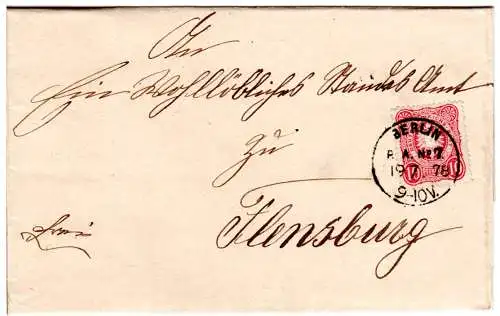 An
Ein Wohllöbliches Standes Amt
zu
Flensburg
frei
BERLIN
P. A. No 7.
19 7 78
9-10V.